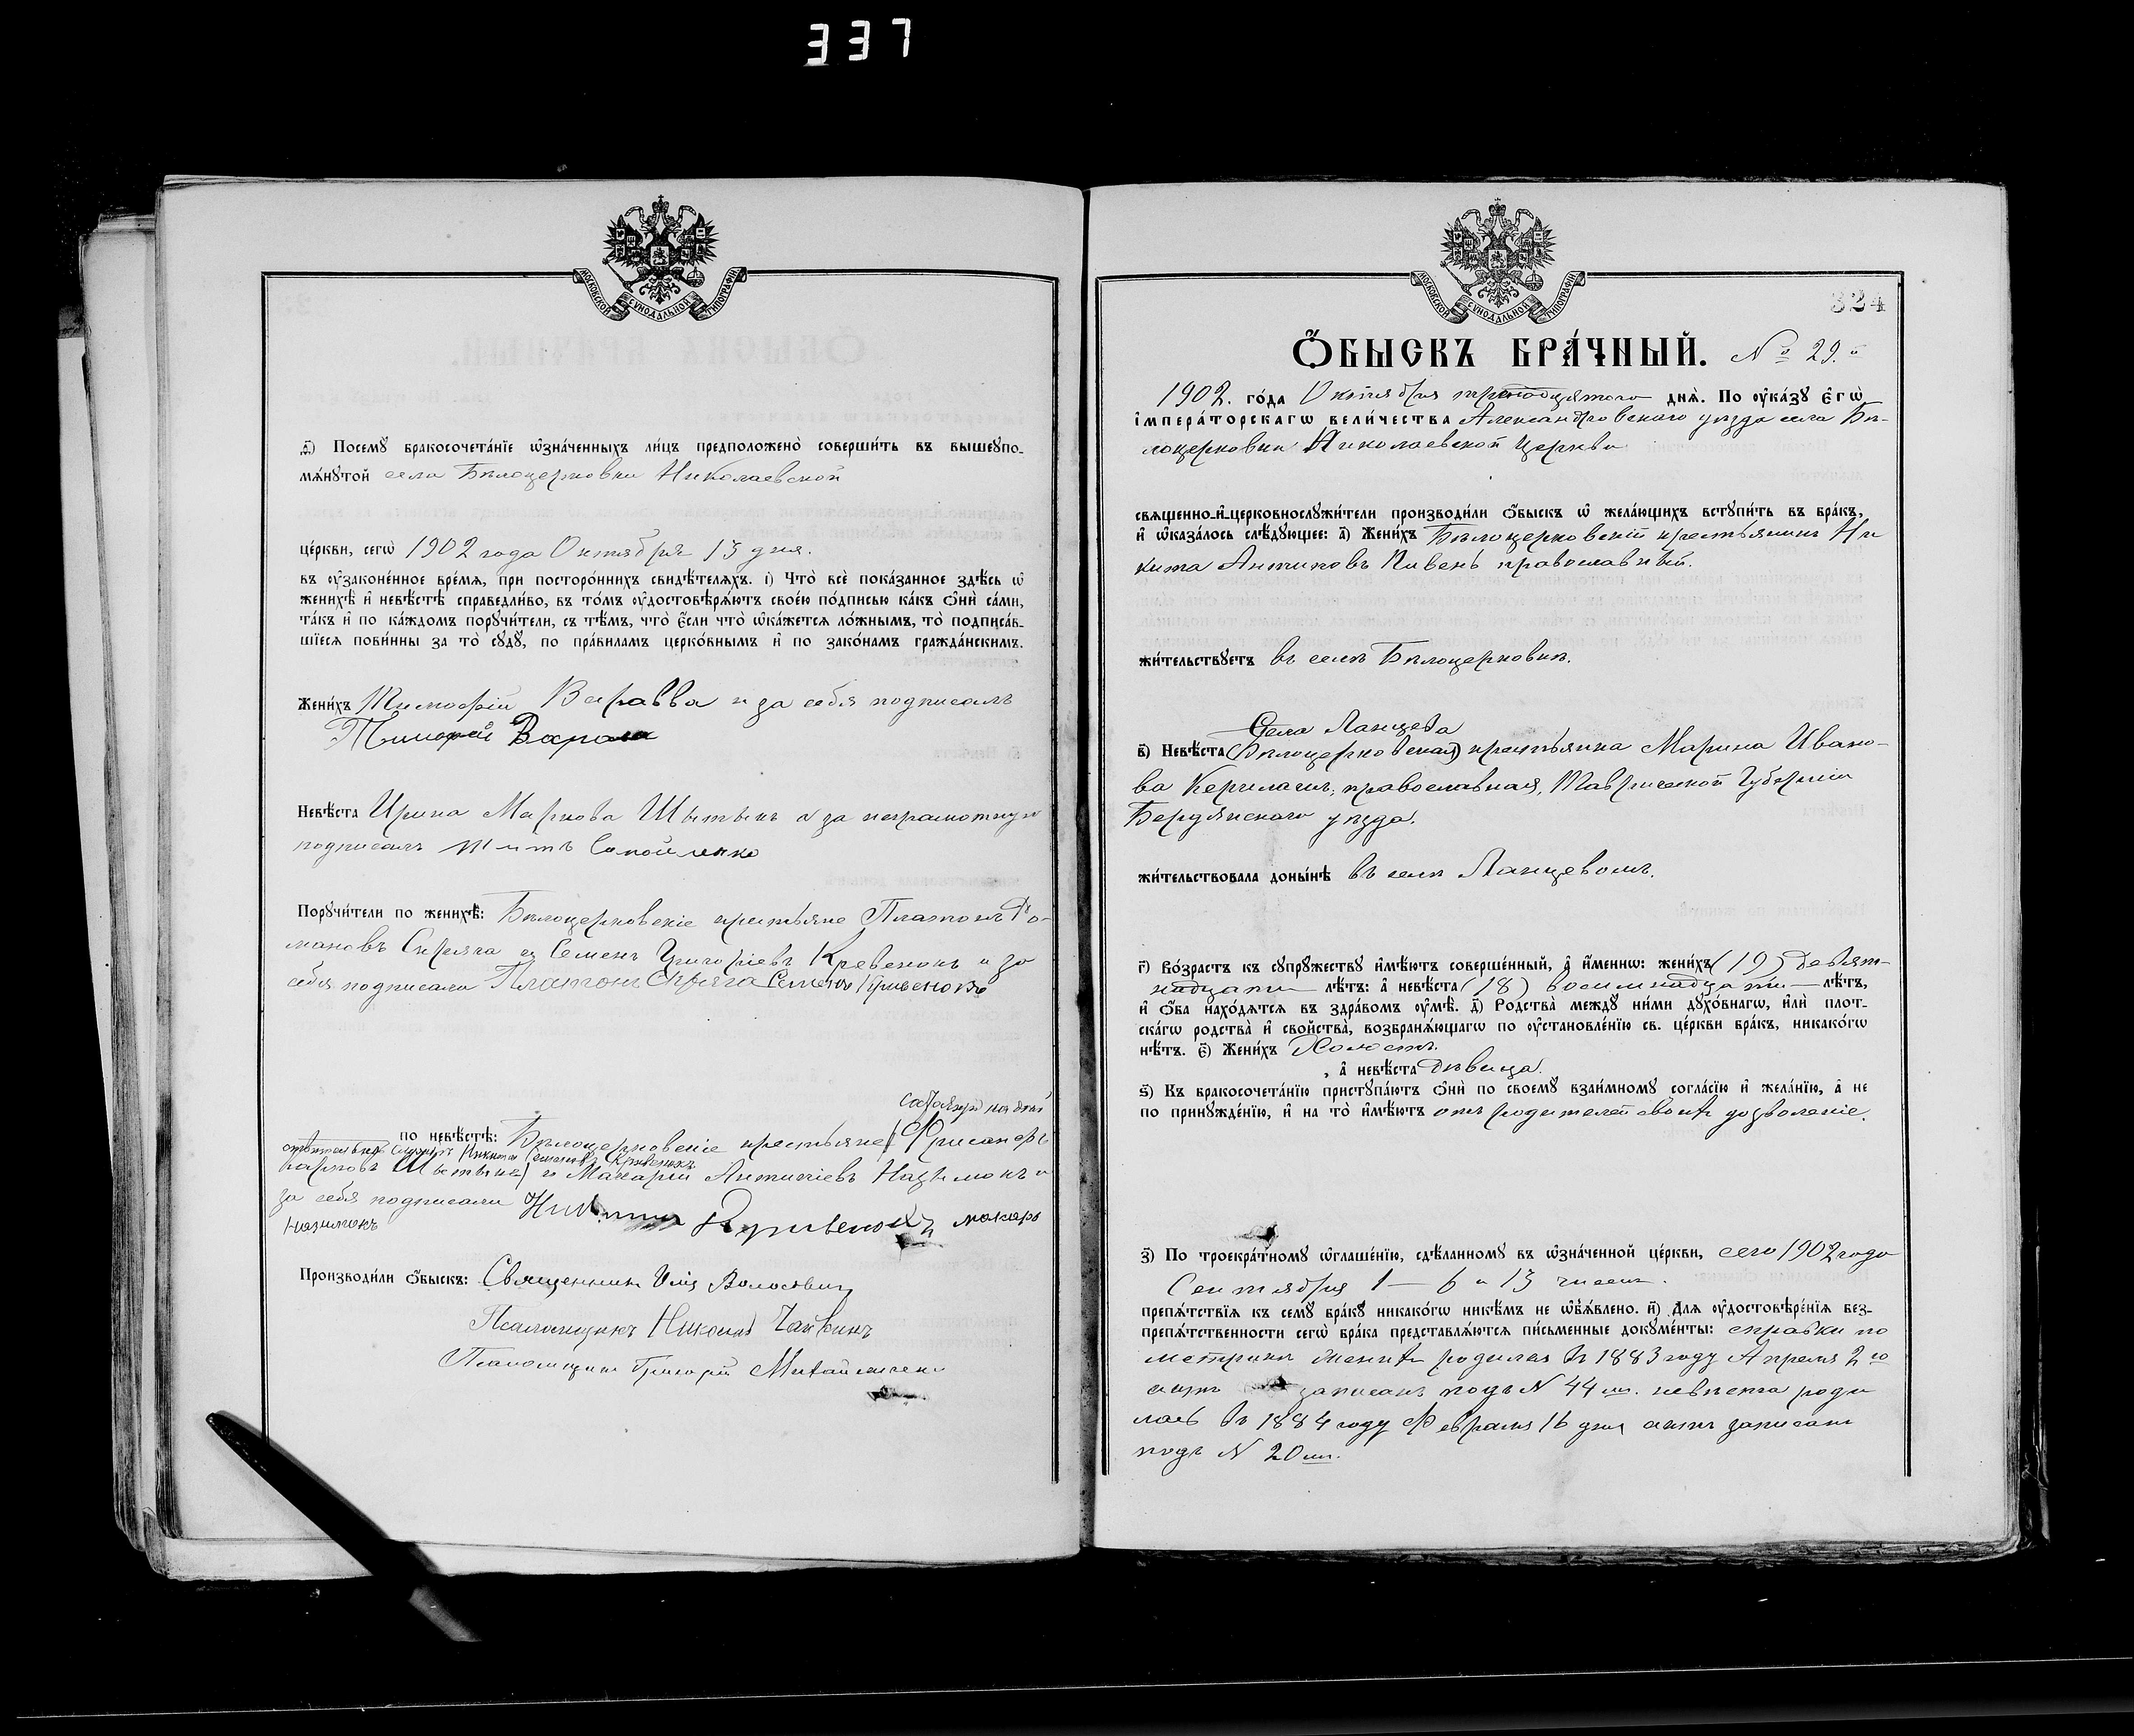 337
МОСКОВСКОЙ СѴНОДАЛЬНОЙ ТИПОГРАФІИ
ѳ҃) Посемꙋ бракосочета́нїе ѡ҆зна́ченныхъ ли́цъ предположено̀ соверши́ть въ вышеꙋпо-
мѧ́нꙋтой села Бѣлоцерковки Николаевской
це́ркви, сегѡ̀ 1902 года Октября 13 дня.
въ ᲂу҆зако́ненное вре́мѧ, при посторо́ннихъ свидѣ́телѧхъ. і҃) Что̀ всѐ пока́занное здѣ́сь ѡ҆
женихѣ̀ и҆ невѣ́стѣ справедли́во, въ то́мъ ᲂу҆достовѣрѧ́ютъ свое́ю по́дписью ка́къ ѻ҆нѝ са́ми,
та́къ и҆ по ка́ждомъ порꙋчи́тели, съ тѣ́мъ, что̀ є҆́сли что̀ ѡ҆ка́жетсѧ ло́жнымъ, то̀ подписа́в-
шїесѧ пови́нны за то̀ сꙋдꙋ̀, по пра́виламъ церко́внымъ и҆ по зако́намъ гражда́нскимъ.
Жени́хъ Тимофей Варавва и за себя подписалъ
Тимофей Варава
Невѣ́ста Ирина Маркова Шытыкъ а за неграмотную
подписалъ Титъ Самойленко
Порꙋчи́тели по женихѣ̀: Бѣлоцерковскіе крестьяне Платонъ Ро-
мановъ Скряга и Семенъ Григоріевъ Кревенокъ и за
себя подписали Платонъ Скряга Семенъ Кривенокъ
по невѣ́стѣ: Бѣлоцерковскіе крестьяне
Никита Семеновъ Кривенокъ
Карповъ Шытыкъ) и Макарій Антипіевъ Назымокъ и
за себя подписали Никита Кривенокъ макаръ
Назимокъ
Производи́ли ѻ҆́быскъ: Священникъ Илія Волосевич
Псаломщикъ Николай
Псаломщикъ Григорій Михайличенко
МОСКОВСКОЙ СѴНОДАЛЬНОЙ ТИПОГРАФІИ
324
Ѻ҆́БЫСКЪ БРА́ЧНЫЙ. № 29.й
1902. го́да Октября тринадцятого днѧ̀. По ᲂу҆ка́зꙋ є҆гѡ̀
і҆мпера́торскагѡ вели́чества Александровского уѣзда села Бѣ-
лоцерковки Николаевской Церкви
свѧщенно-и҆-церковнослꙋжи́тели производи́ли ѻ҆́быскъ ѡ҆ жела́ющихъ встꙋпи́ть въ бра́къ,
и҆ ѡ҆каза́лось слѣ́дꙋющее: а҃) Жени́хъ Бѣлоцерковскій крестьянинъ Ни
кита Антиповъ Пивень православный.
жи́тельствꙋетъ въ селѣ Бѣлоцерковкѣ.
Села Ланцева
в҃) Невѣ́ста (Бѣлоцерковская) крестьянка Марина Ивано-
ва православная, Таврической Губерніи
Бердянскаго уѣзда.
жи́тельствовала доны́нѣ въ селѣ Ланцевомъ.
г҃) Во́зрастъ къ сꙋпрꙋ́жествꙋ и҆мѣ́ютъ соверше́нный, а҆ и҆́меннѡ: жени́хъ (19) Девят-
надцати лѣ́тъ: а҆ невѣ́ста (18) восемнадцати лѣ́тъ,
и҆ ѻ҆́ба нахо́дѧтсѧ въ здра́вомъ ᲂу҆мѣ̀. д҃) Родства̀ междꙋ̀ ни́ми дꙋхо́внагѡ, и҆лѝ плот-
ска́гѡ родства̀ и҆ свойства̀, возбранѧ́ющагѡ по ᲂу҆становле́нїю св. це́ркви бра́къ, никако́гѡ
нѣ́тъ. є҃) Жени́хъ Холостъ.
, а҆ невѣ́ста дѣвица.
ѕ҃) Къ бракосочета́нїю пристꙋпа́ютъ ѻ҆нѝ по своемꙋ̀ взаи́мномꙋ согла́сїю и҆ жела́нїю, а҆ не
по принꙋжде́нїю, и҆ на то̀ и҆мѣ́ютъ отъ родителей своихъ дозволеніе.
з҃) По троекра́тномꙋ ѡ҆глаше́нїю, сдѣ́ланномꙋ въ ѡ҆зна́ченной це́ркви, сего 1902 года
Сентября 1 — 6 и 13 чиселъ.
препѧ́тствїѧ къ семꙋ̀ бра́кꙋ никако́гѡ никѣ́мъ не ѡ҆бъѧ́влено. и҃) Длѧ ᲂу҆достовѣре́нїѧ без-
препѧ́тственности сегѡ̀ бра́ка представлѧ́ютсѧ пи́сьменные докꙋме́нты: справки по
метрикѣ женихъ родился въ 1883 году Апреля 2го
актъ записанъ подъ № 44 мъ. невѣста роди
лась въ 1884 году Февраля 16 дня актъ записанъ
подъ № 20 мъ.